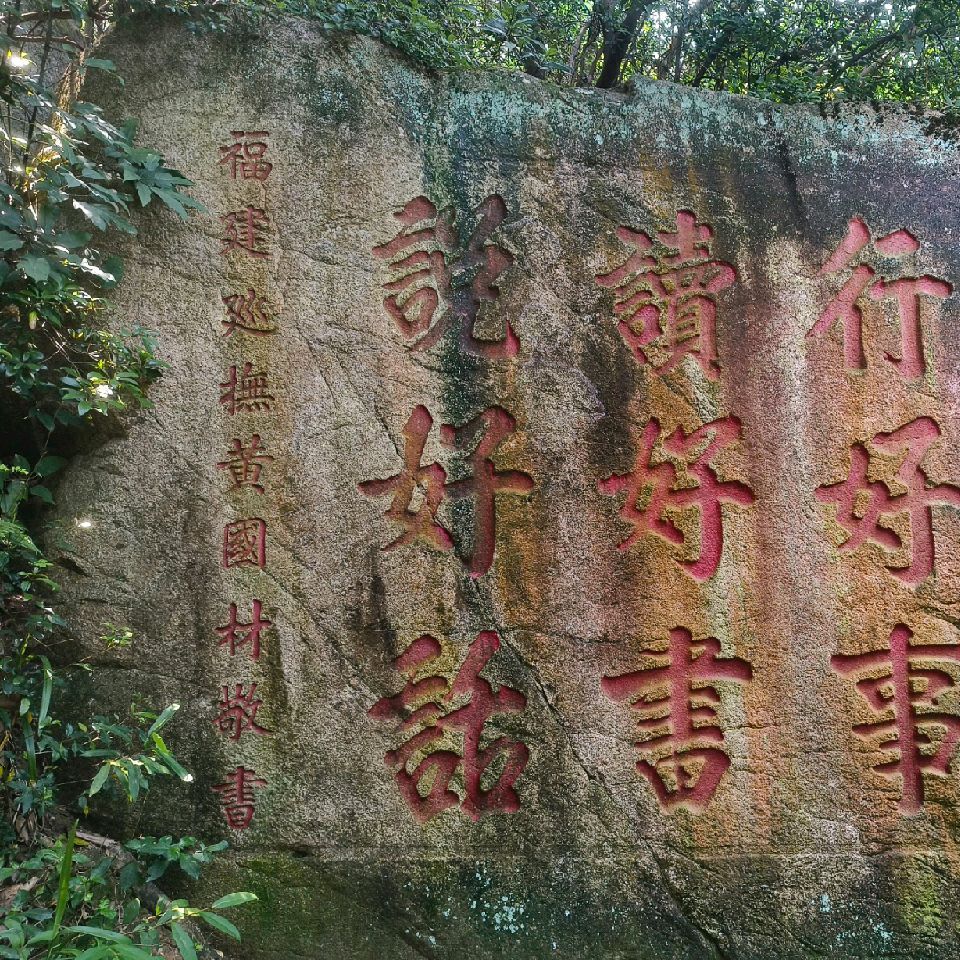 行好事
讀好書
說好話
福建廵撫黃國材敬書